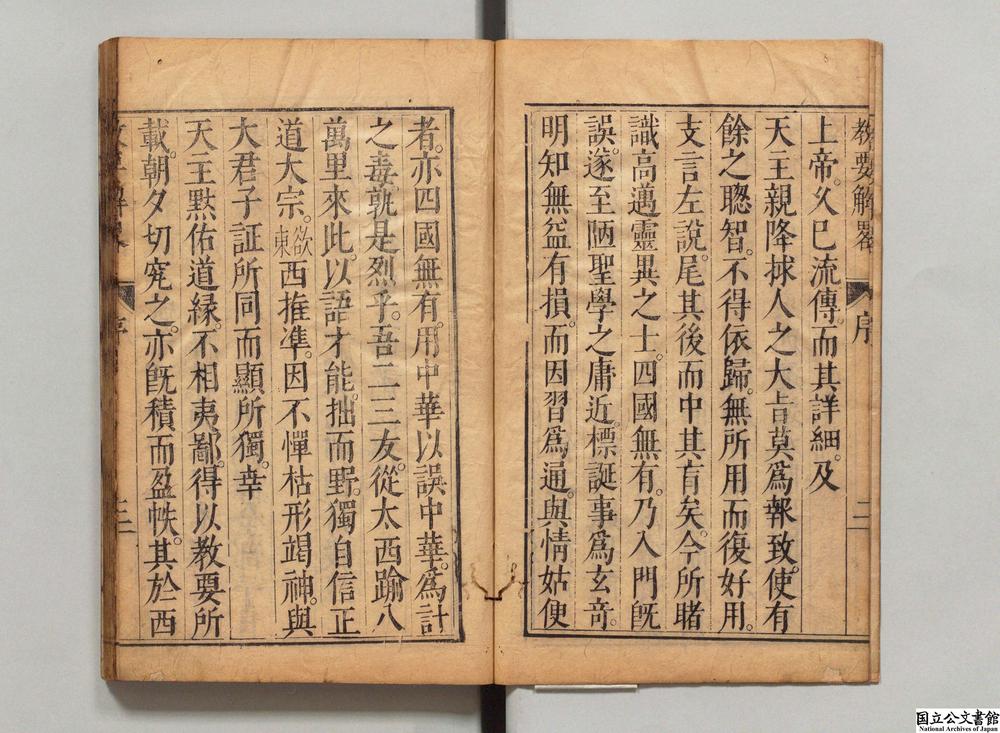 教要解畧 序 二
上帝。久已流傳。而其詳細。及
天主親降捄人之大旨莫爲報致。使有
餘之聰智。不得依歸。無所用而復好用。
支言左說。尾其後而中其肓矣。今所睹
識高邁靈異之士。四國無有。乃入門旣
誤。遂至陋聖學之庸近。標誕事爲玄奇。
明知無益有損。而因習爲通。與情姑便
者。亦四國無有。用中華以誤中華。爲計
之毒。孰是烈乎。吾二三友。從太西踰八
萬里來此。以語才能。拙而野。獨自信正
道大宗。欲東西推準。因不憚枯形竭神。與
大君子証所同而顯所獨。幸
天主黙佑道緣。不相夷鄙。得以教要所
載。朝夕切究之。亦旣積而盈帙。其於西
国立公文書館
National Archives of Japan